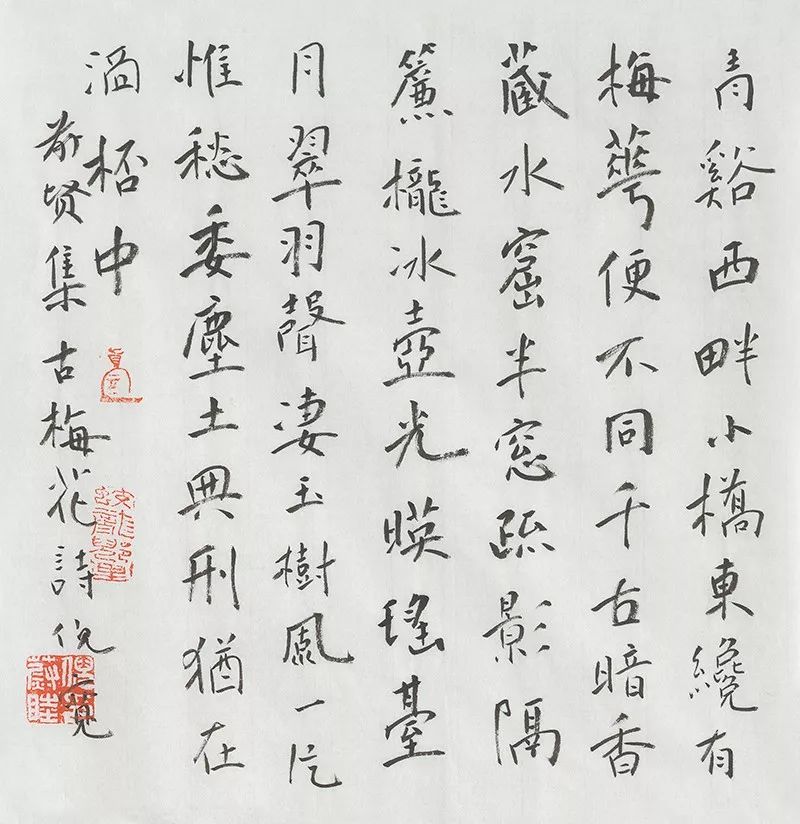 青谿西畔小橋東纔有
梅蕐便不同千古暗香
藏水窟半窓疏影隔
簾櫳冰壺光暎瑤臺
月翠羽聲淒玉樹風一片
惟愁委塵土典刑猶在
酒桮中
前贤集古梅花詩倪